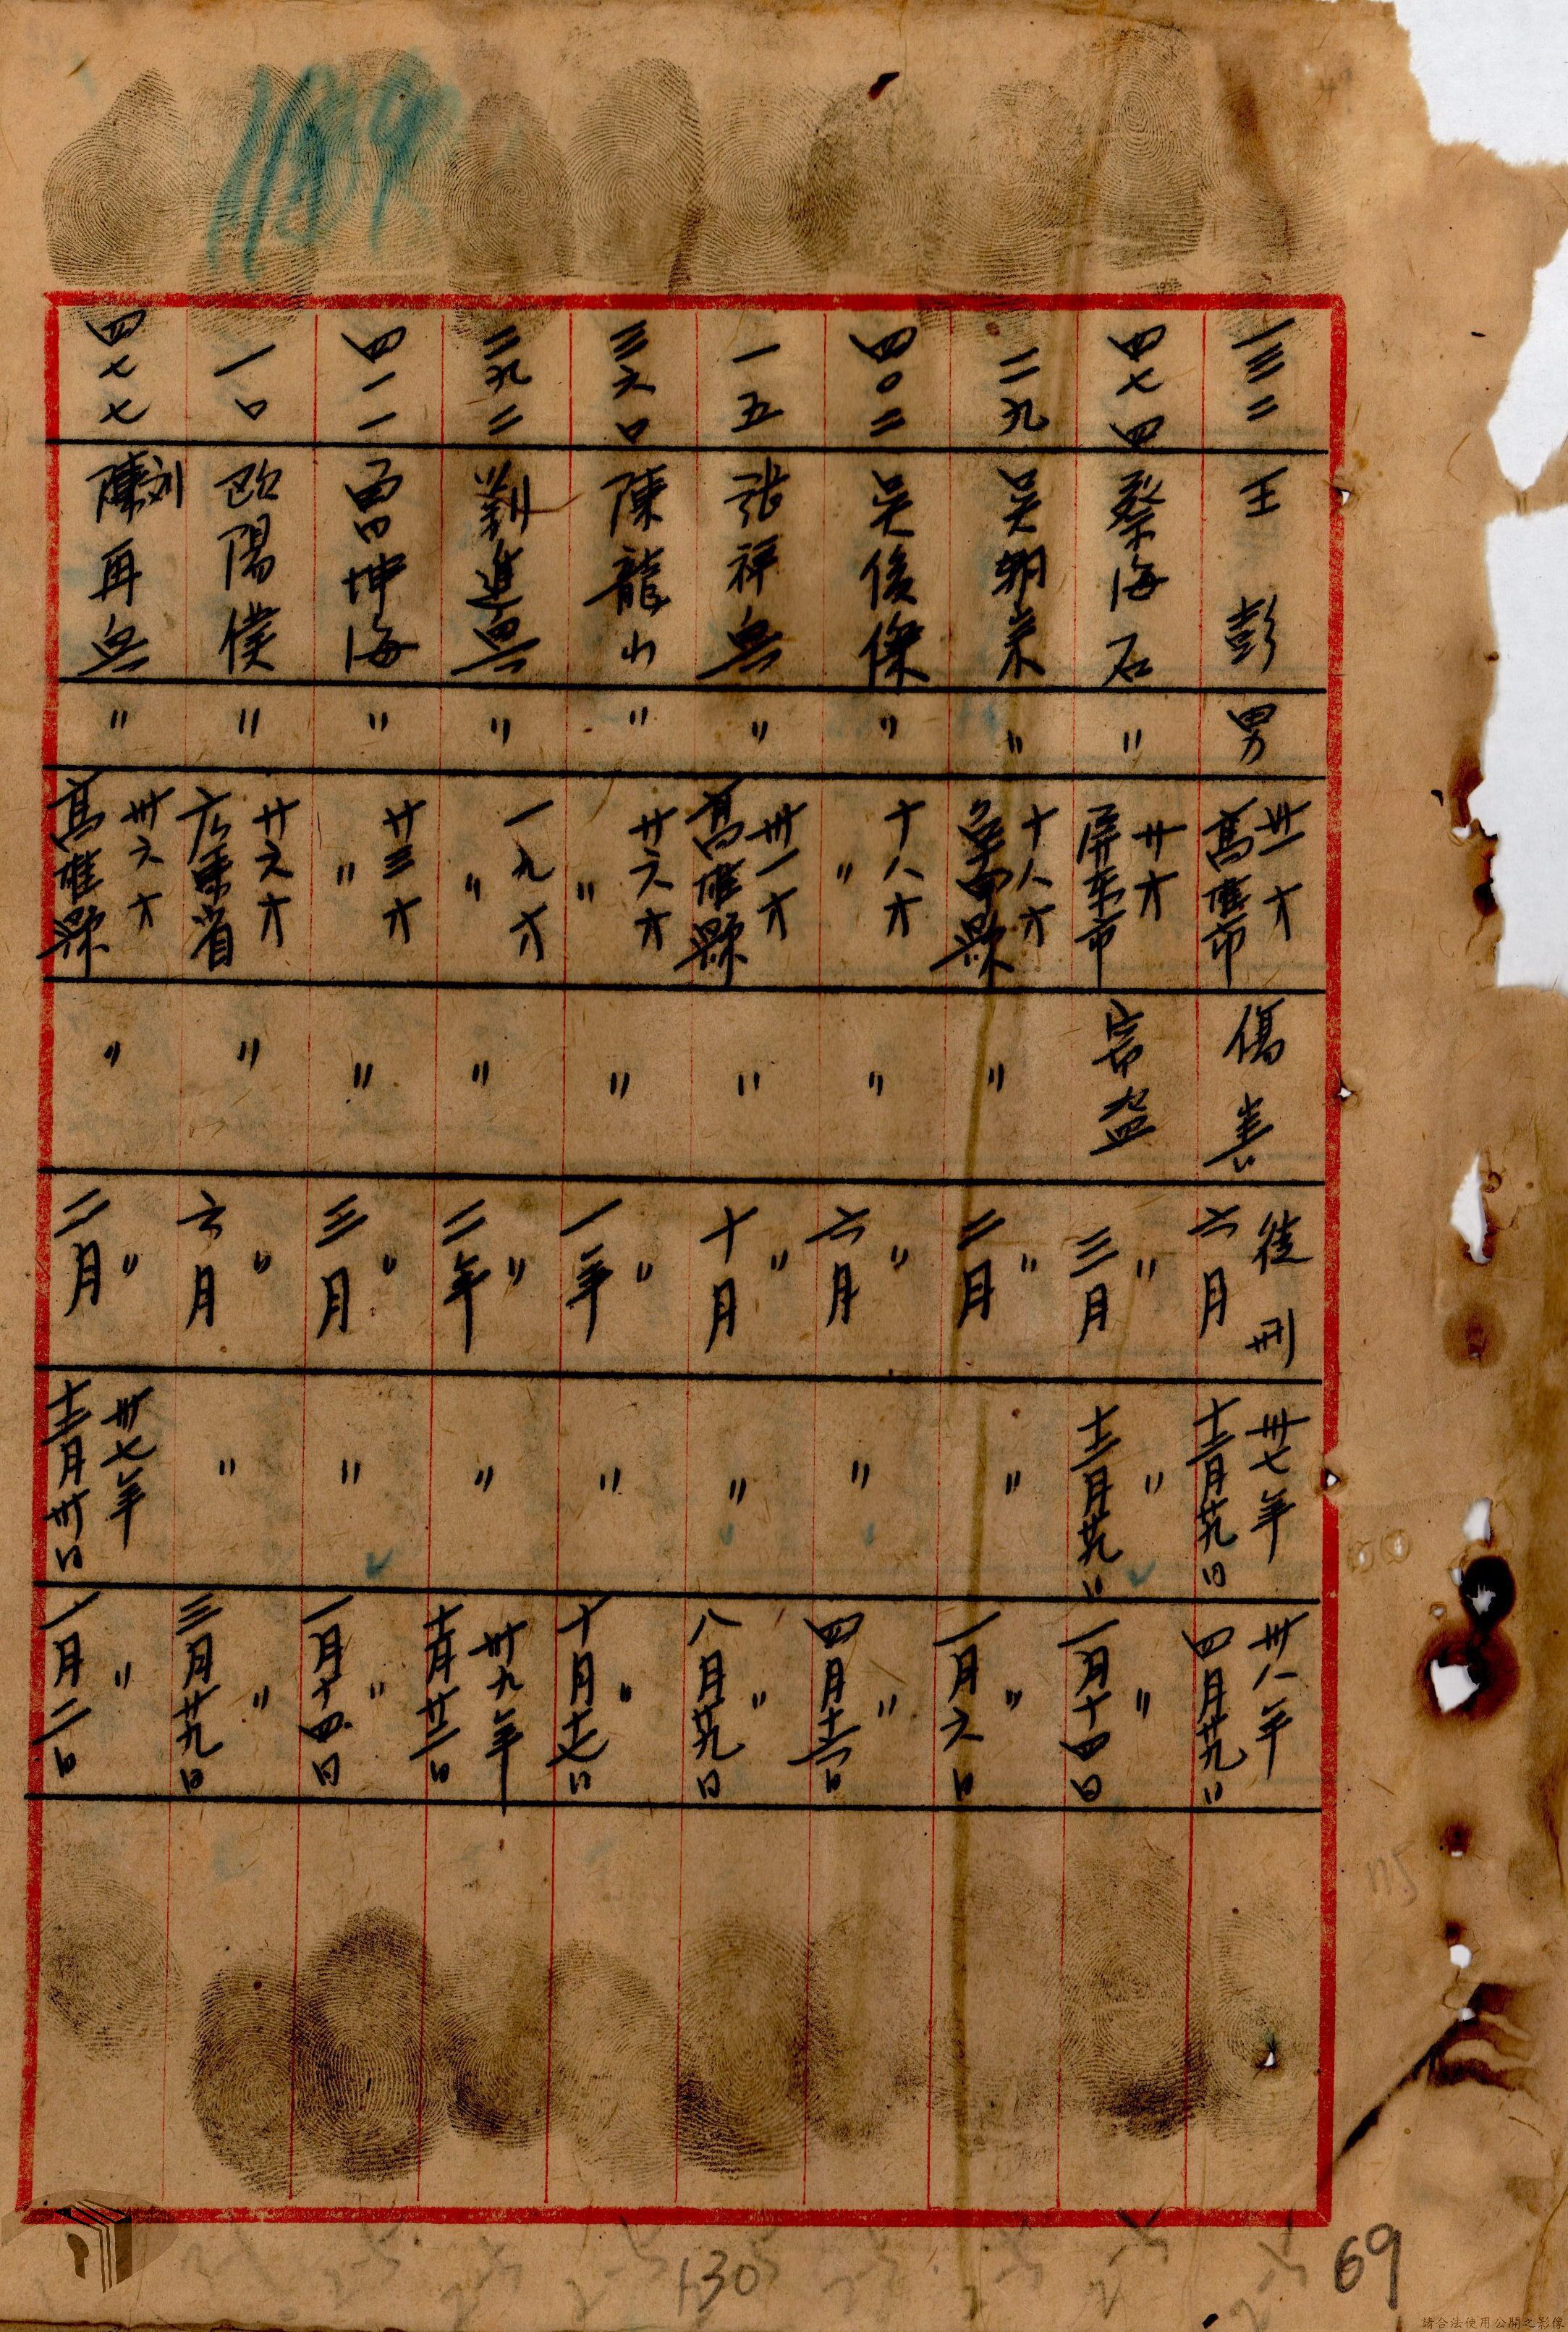 1159
一三二 王彭 男 卅一才 高雄市 傷害 徒刑 六月 卅七年 十二月廿九日 卅八年 四月廿九日
四七四 蔡海石 〃 廿才 屏东市 窃盗 〃 三月 〃 十二月廿九日 〃 一月十四日
二九 吳朝宗 〃 十八才 台南縣 〃 〃 二月 〃 〃 一月六日
四〇二 吴俊傑 〃 十八才 〃 〃 〃 六月 〃 〃 四月十二日
一五 張祥兵 〃 卅一才 高雄縣 〃 〃 十月 〃 〃 八月廿九日
三六口 陳龍山 〃 廿六才 〃 〃 〃 一年 〃 〃 十月十七日
二九二 進興 〃 一九才 〃 〃 〃 二年 〃 卅九年 十月廿二日
四一一 坤海 〃 廿三才 〃 〃 〃 三月 〃 〃 一月十四日
一口 欧陽 〃 廿六才 广東省 〃 〃 六月 〃 〃 三月廿九日
四七七 陳刘再兵 〃 卅六才 高雄縣 〃 〃 二月 卅七年 十二月卅日 〃 一月二日
115
130
69
請合法使用公開之影像